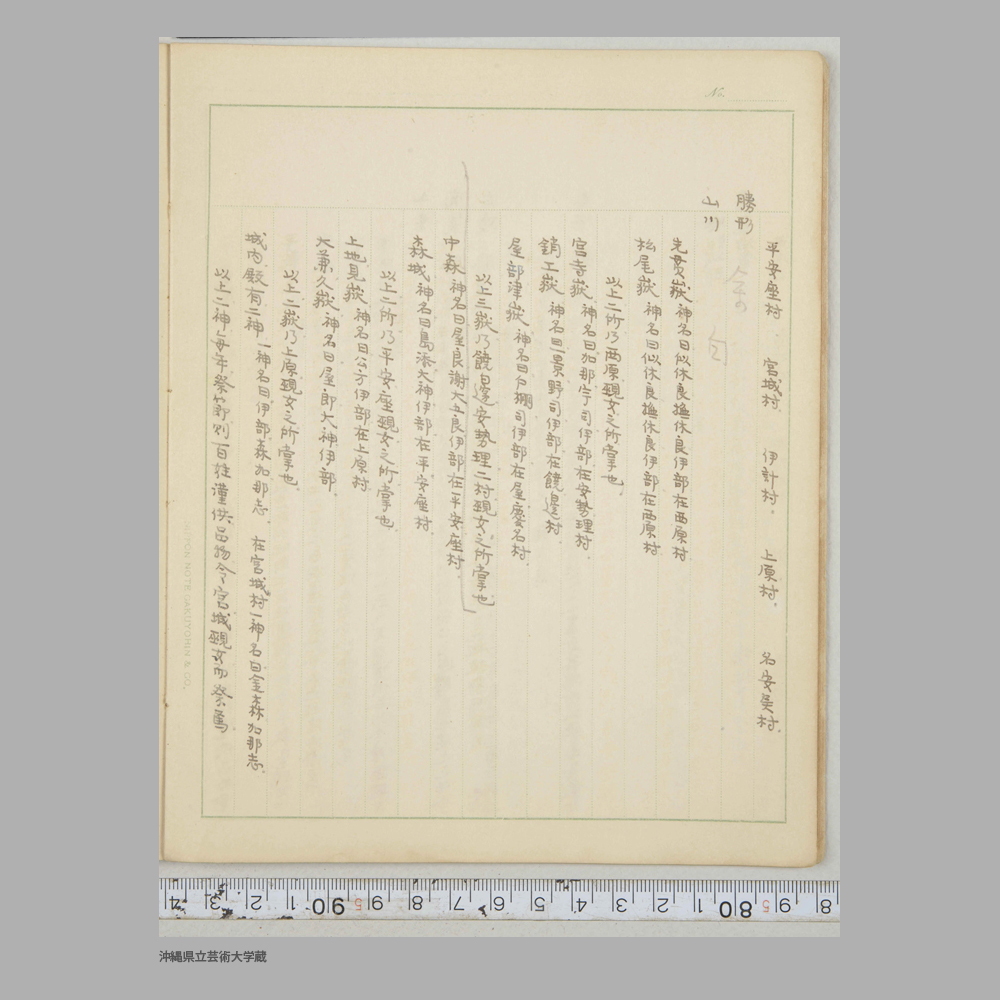 No.
平安座村 宮城村 伊計村 上原村 名安呉村
勝形
山川
先貫嶽 神名曰似休良撫休良伊部在西原村
松尾嶽 神名曰似休良撫休良伊部在西原村
以上二所乃西原覡女之所掌也
宮寺嶽 神名曰加那宇司伊部在安勢理村
鎖工嶽 神名曰景野司伊部在饒邊村
屋部津嶽 神名曰戸棚司伊部在屋慶名村
以上三嶽乃饒邊安勢理二村覡女之所掌也
中森 神名曰屋良謝大五良伊部在平安座村
森城 神名曰島添大神伊部在平安座村
以上二所乃平安座覡女之所掌也
上地見嶽 神名曰公方伊部在上原村
大兼久嶽 神名曰屋郎大神伊部
以上二嶽乃上原覡女之所掌也
城内殿有二神 一神名曰伊部森加那志 在宮城村一神名曰金森加那志
以上二神毎年祭 即則百姓謹供品物令宮城覡女而祭焉
NIPPON NOTE GAKUYOHIN & CO.
4 3 2 1 90 9 5 8 7 6 5 4 3 2 1 80 5 9 8
沖縄県立芸術大学蔵